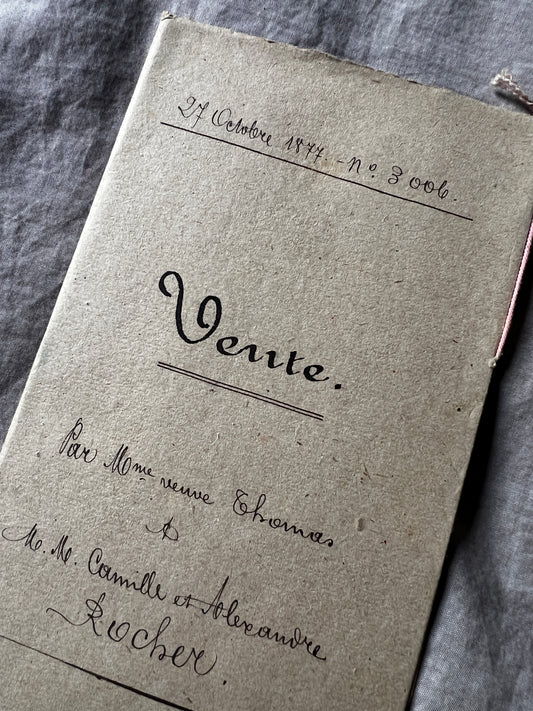 27 Octobre 1877. - No. 3006.
Vente.
Par Mme veuve Thomas
A
M. M. Camille et Alexandre
Rocher.